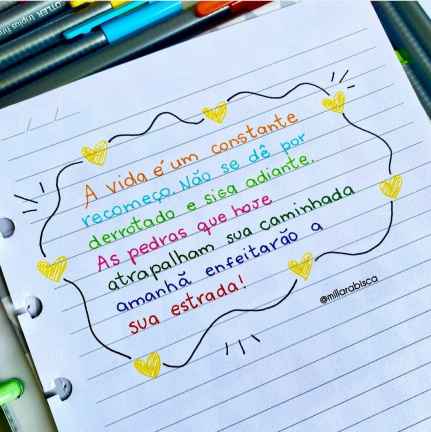 A vida é um constante
recomeço. Não se dê por
derrotado e siga adiante.
As pedras que hoje
atrapalham sua caminhada
amanhã enfeitarão a
sua estrada!
@millarabisca